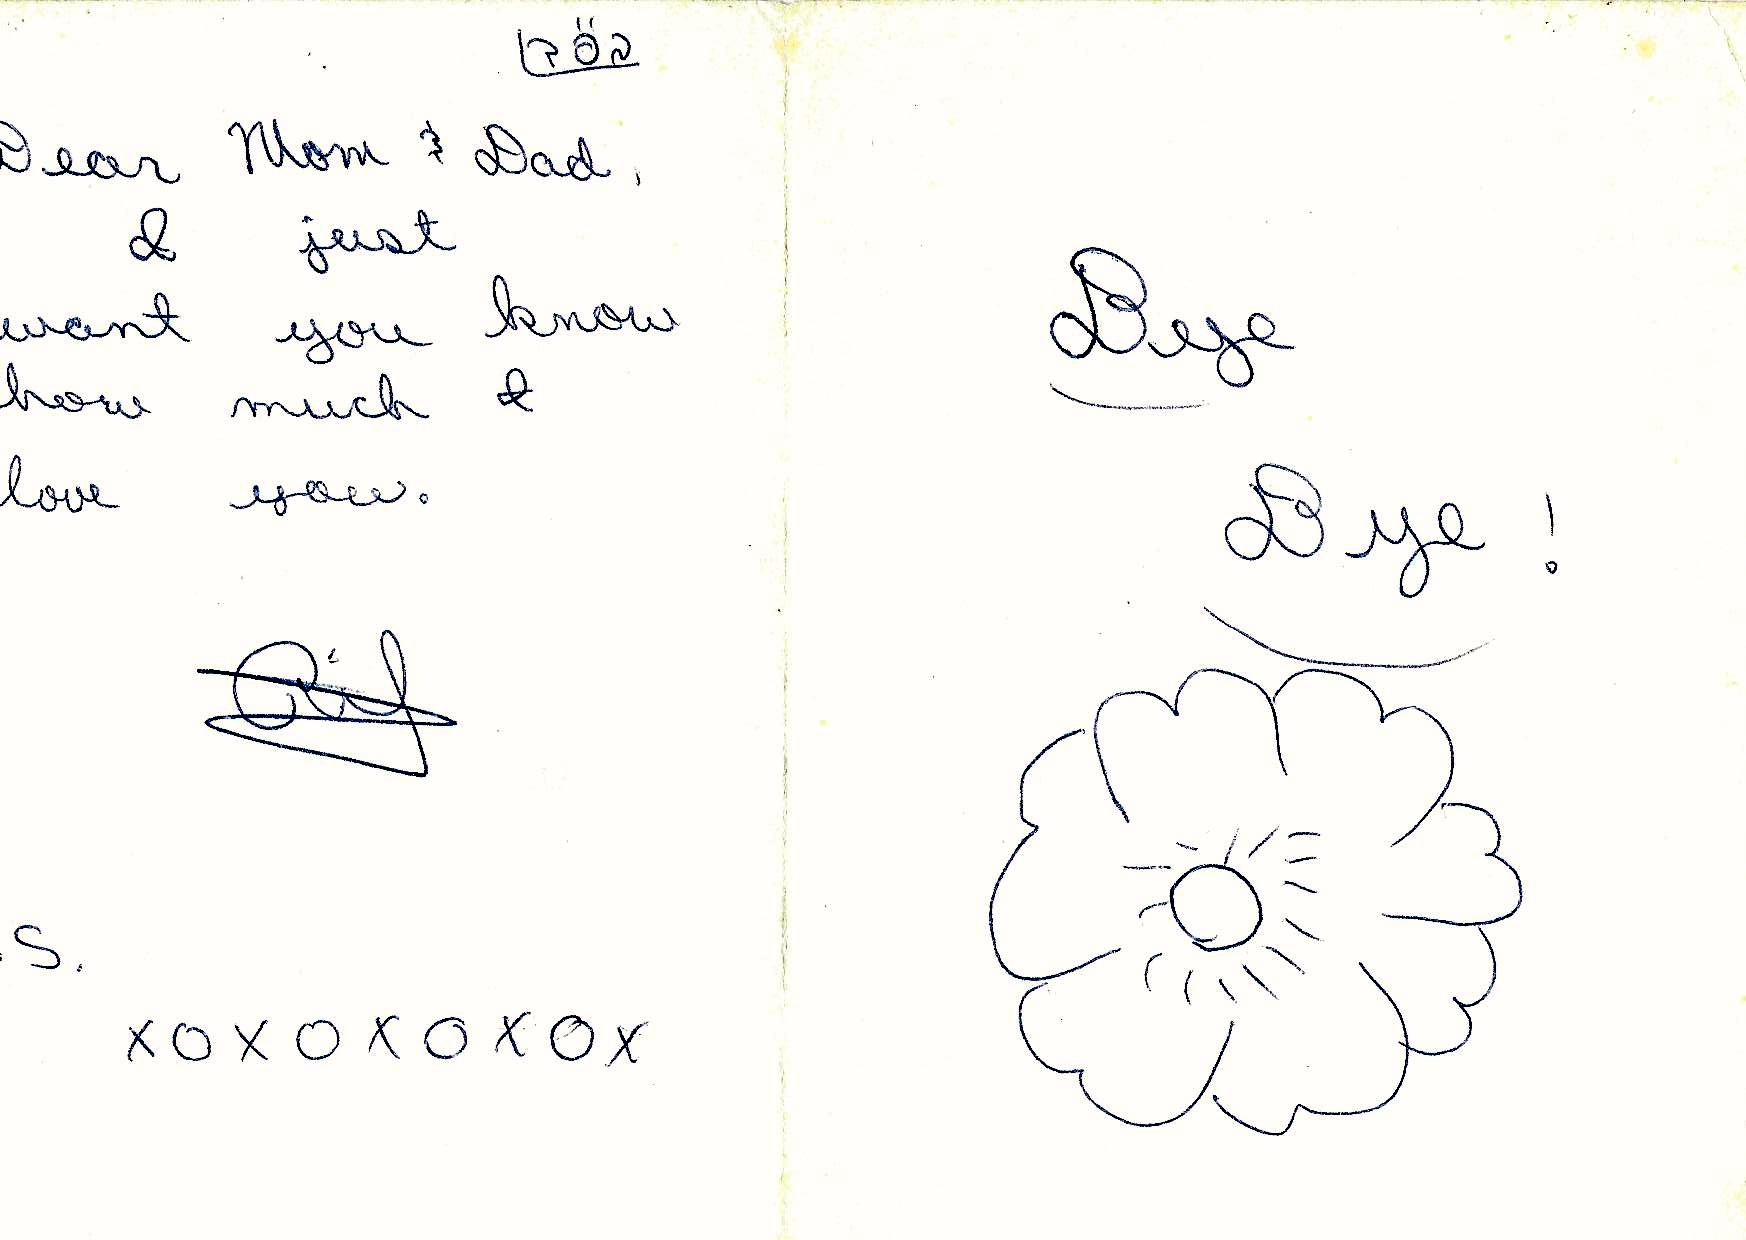 Dear Mom & Dad,
I just
want you know
how much I
love you.
.S.
XOXOXOXOX
Bye
Bye !